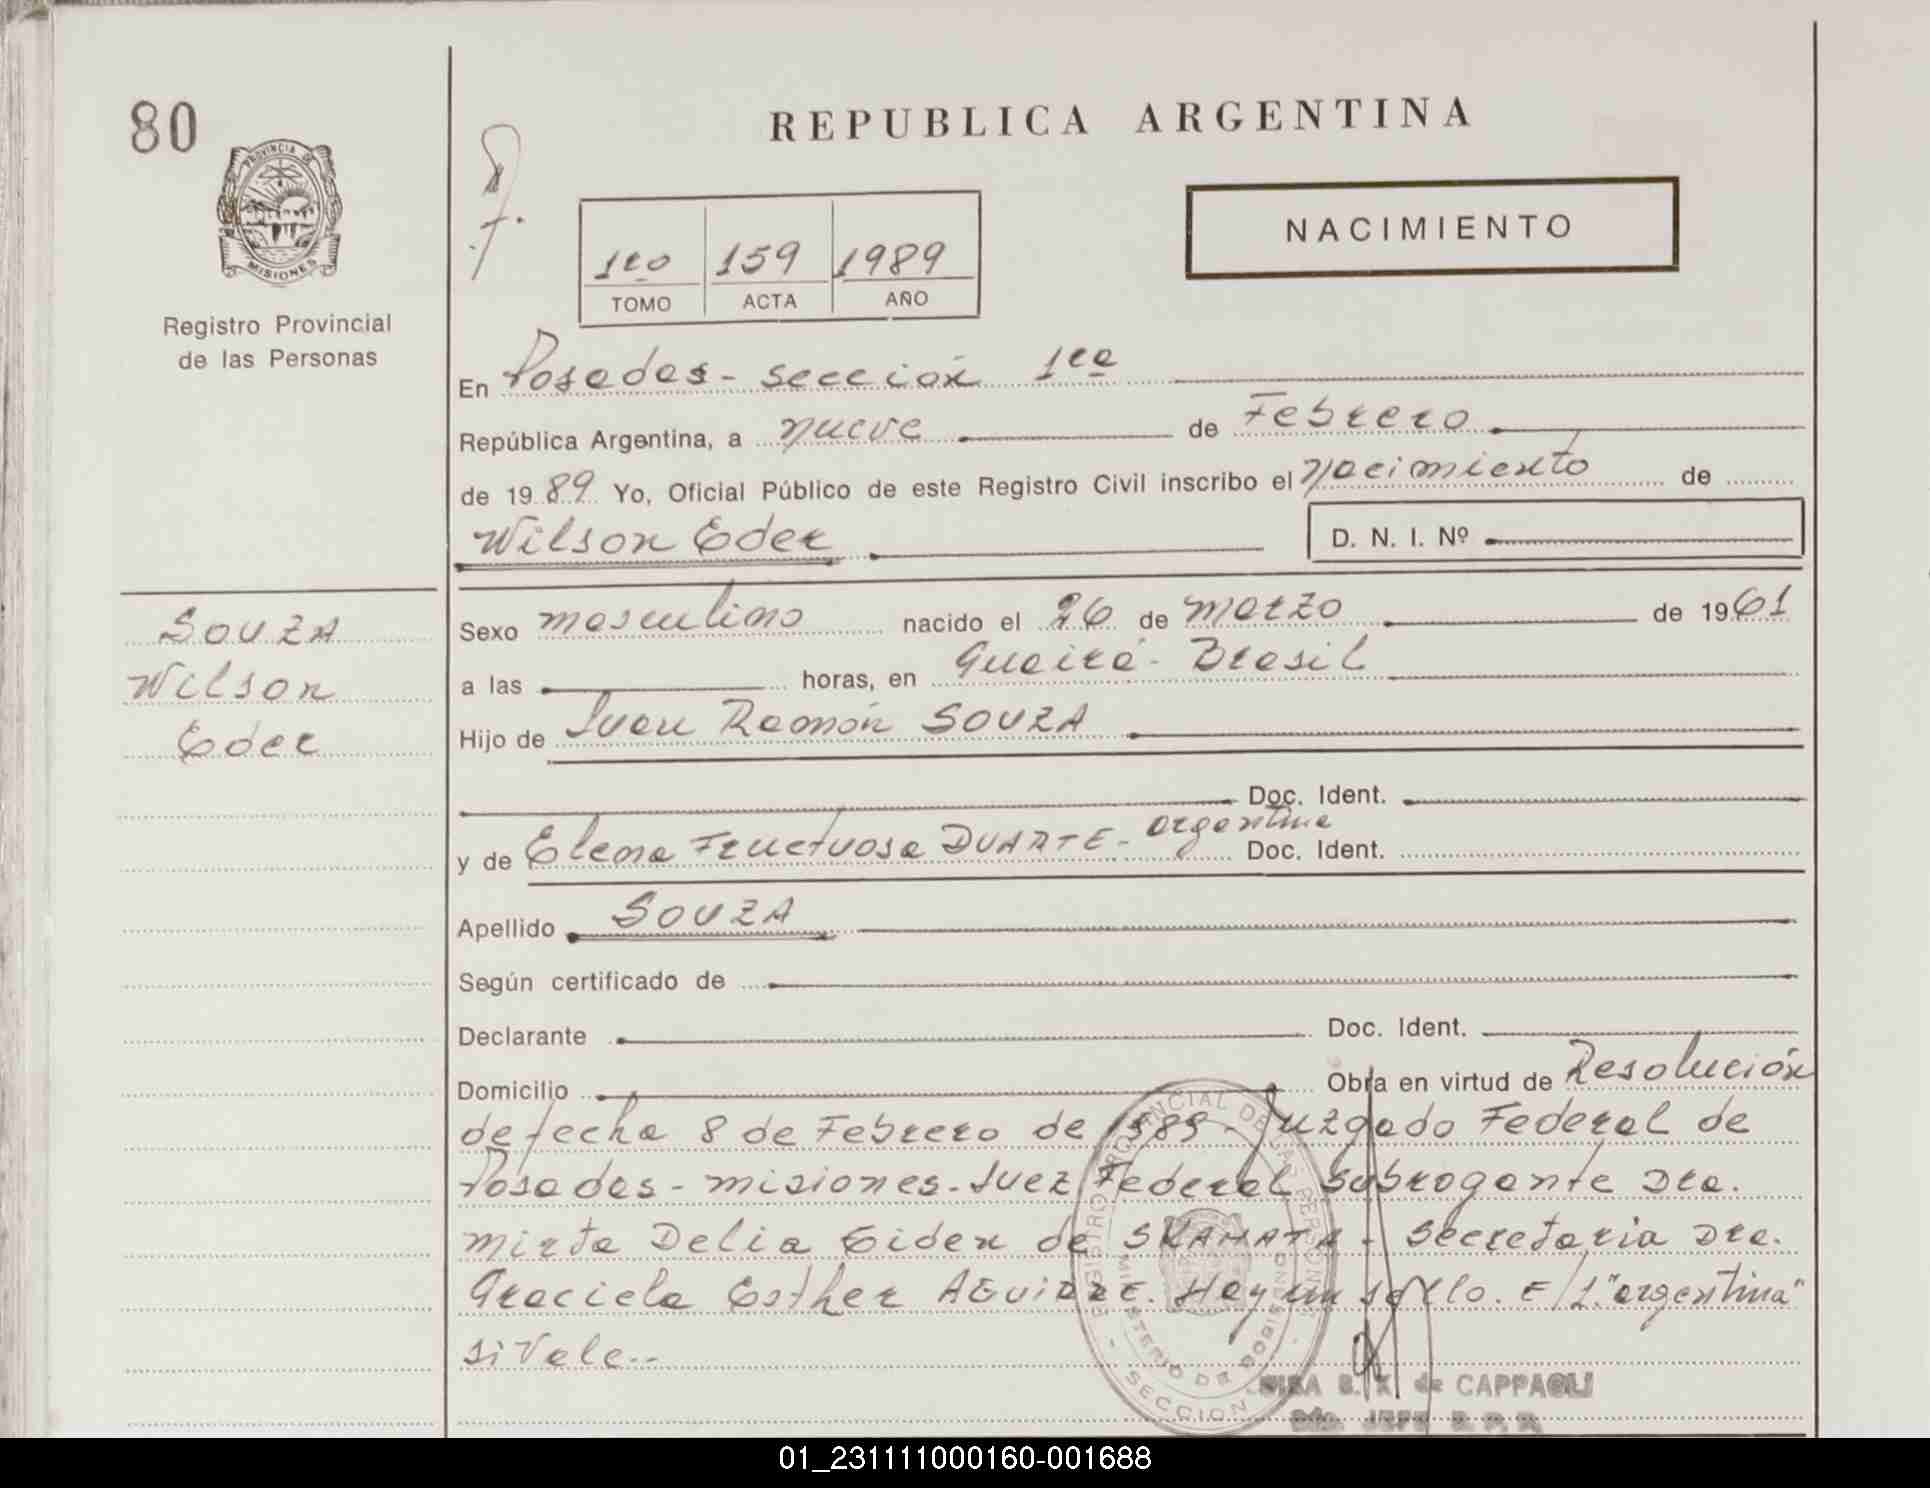 80
REPUBLICA ARGENTINA
PROVINCIA DE
MISIONES
Registro Provincial
de las Personas
1ro 159 1989
TOMO ACTA AÑO
NACIMIENTO
En Posadas - sección 1ra
República Argentina, a nueve de Febrero
de 1989 Yo, Oficial Público de este Registro Civil inscribo el nacimiento de
Wilson Eder D. N. I. Nº
SOUZA
Wilson
Eder
Sexo masculino nacido el 26 de marzo de 1961
a las horas, en Guairá - Brasil
Hijo de Juan Ramón SOUZA
Doc. Ident.
y de Elena Fructuosa DUARTE - argentina Doc. Ident.
Apellido SOUZA
Según certificado de
Declarante Doc. Ident.
Domicilio Obra en virtud de Resolución
de fecha 8 de Febrero de 1989 - Juzgado Federal de
Posadas - misiones - Juez Federal Subrogante Dra.
mirta Delia Eiden de SKANATA - Secretaria Dra.
Graciela Esther AGUIRRE. Hay un sello. E/L "argentina"
si Vale..
REGISTRO PROVINCIAL DE LAS PERSONAS
MINISTERIO DE GOBIERNO
SECCION
de CAPPAGLI
JEFE R. P. P.
01_231111000160-001688